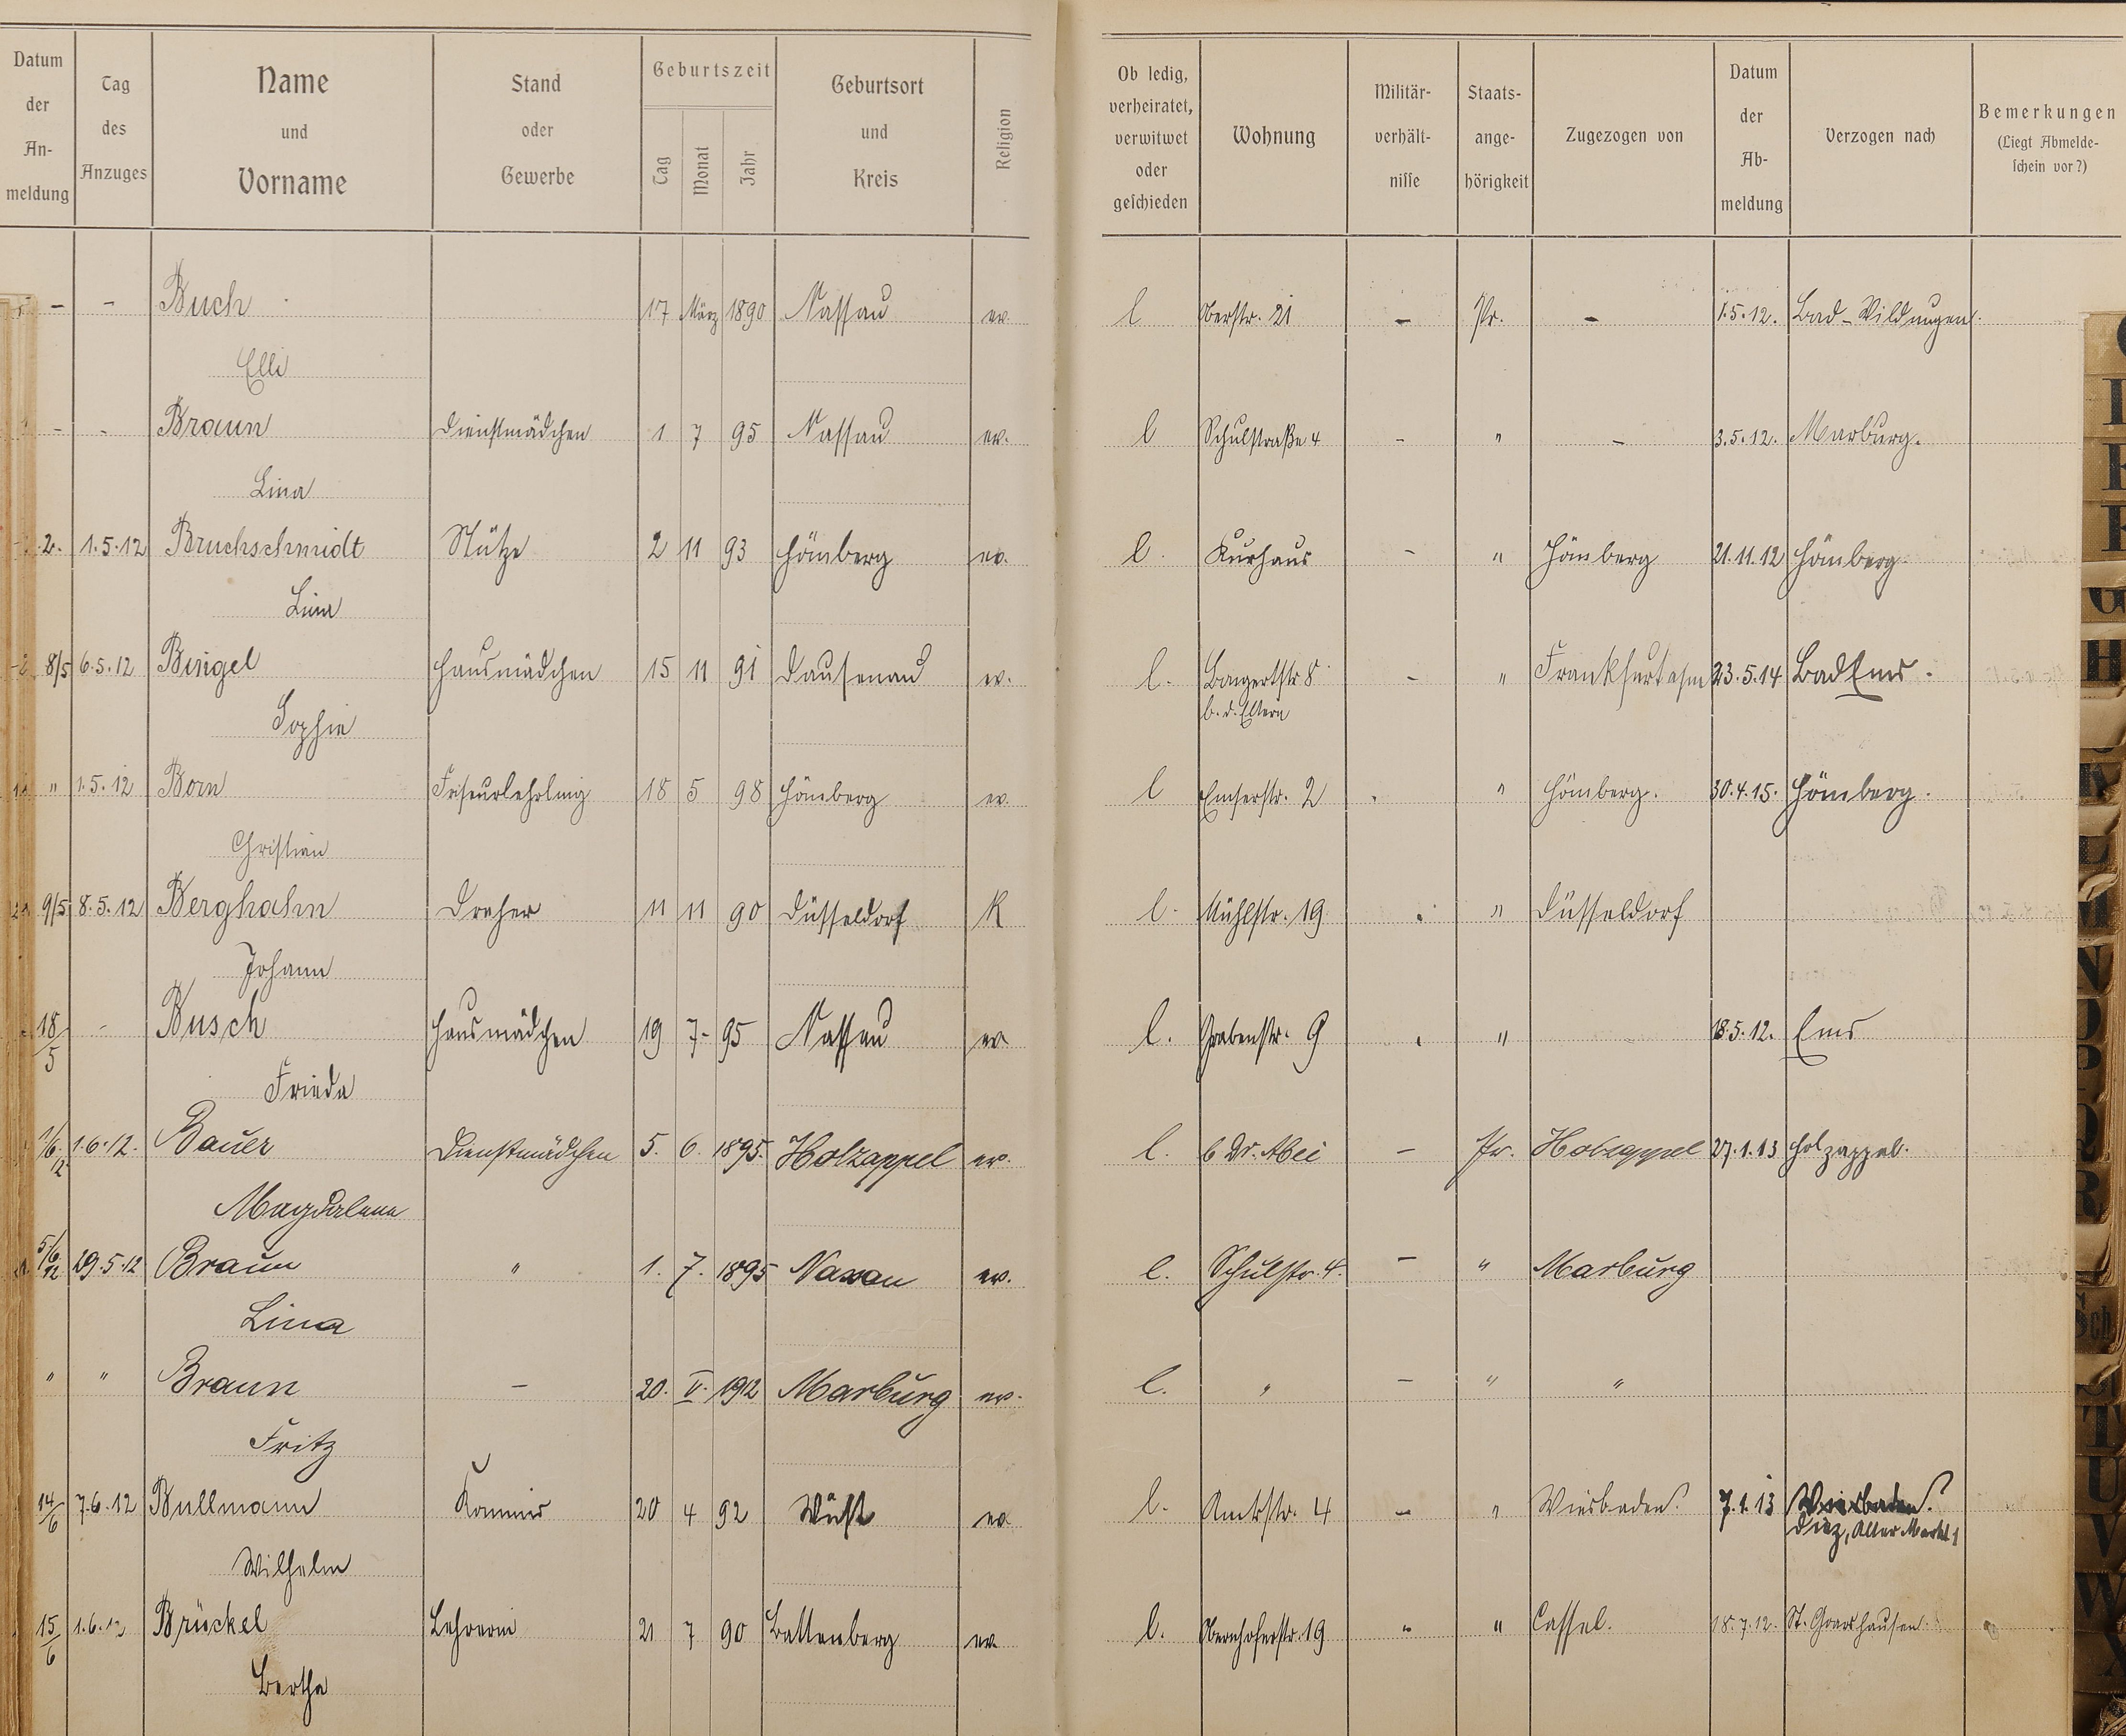 Datum der Anmeldung | Tag des Anzuges | Name und Vorname | Stand oder Gewerbe | Geburtszeit Tag Monat Jahr | Geburtsort und Kreis | Religion | Ob ledig, verheiratet, verwitwet oder geschieden | Wohnung | Militärverhältnisse | Staatsangehörigkeit | Zugezogen von | Datum der Abmeldung | Verzogen nach | Bemerkungen (Liegt Abmeldeschein vor?)
– – Buch 17 März 1890 Nassau ev. l Oberstr. 21 – Pr. – 1.5.12. Bad-Wildungen.
Elli
– – Braun Dienstmädchen 1 7 95 Nassau ev. l Schulstraße 4 – " – 3.5.12. Marburg.
Lina
2. 1.5.12 Bruchschmidt Stütze 2 11 93 Hömberg ev. l. Kurhaus – " Hömberg 21.11.12 Hömberg
Lina
8/5 6.5.12 Bingel Hausmädchen 15 11 91 Dausenau ev. l. 8 – " Frankfurt a/m 23.5.14 Bad Ems.
b. d. Eltern
Sophie
" 1.5.12 Born Friseurlehrling 18 5 98 Hömberg ev. l Emserstr. 2 " Hömberg. 30.4.15. Hömberg.
Christian
9/5 8.5.12 Berghahn Dreher 11 11 90 Düsseldorf K l. Mühlstr. 19 " Düsseldorf
Johann
18/5 – Busch Hausmädchen 19 7 – 95 Nassau ev l. Grabenstr. 9 " 18.5.12. Ems
Frieda
1/6.12 1.6.12. Bauer Dienstmädchen 5. 6. 1895. Holzappel ev. l. b Dr. – Pr. Holzappel 27.1.13 Holzappel.
Magdalena
5/6.12 29.5.12 Braun " 1. 7. 1895 Nassau ev. l. Schulstr. 4. – " Marburg
Lina
" " Braun – 20. V. 1912 Marburg ev. l. " – " "
Fritz
14/6 7.6.12 Bullmann Kommis 20 4 92 ev l. Amtsstr. 4 – " Wiesbaden. 7.1.13 Wiesbaden.
Diez, Alter Markt 1
Wilhelm
15/6 1.6.12 Brückel Lehrerin 21 7 90 Battenberg ev l. Obernhoferstr. 19 " " Cassel. 18.7.12. St. Goarshausen
Bertha